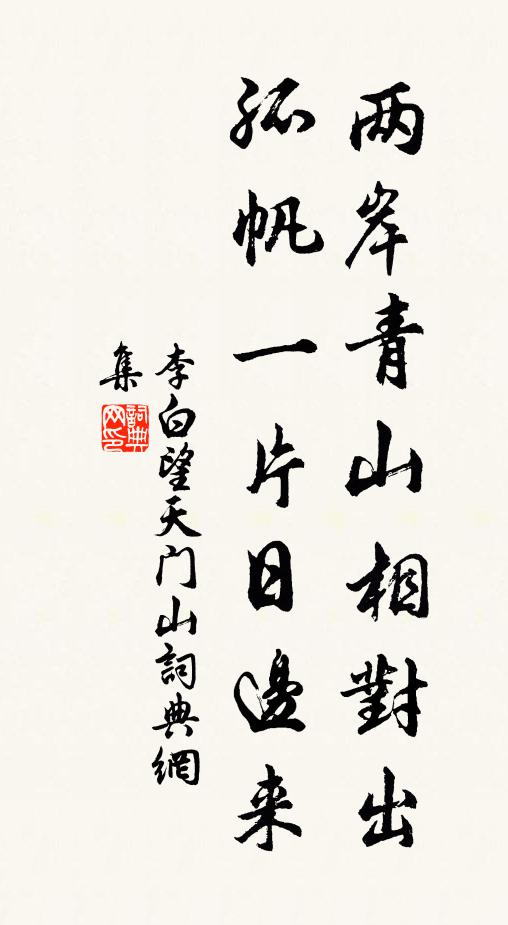 两岸青山相對出
孤帆一片日邊来
李白望天门山詞典網
集
詞典网印